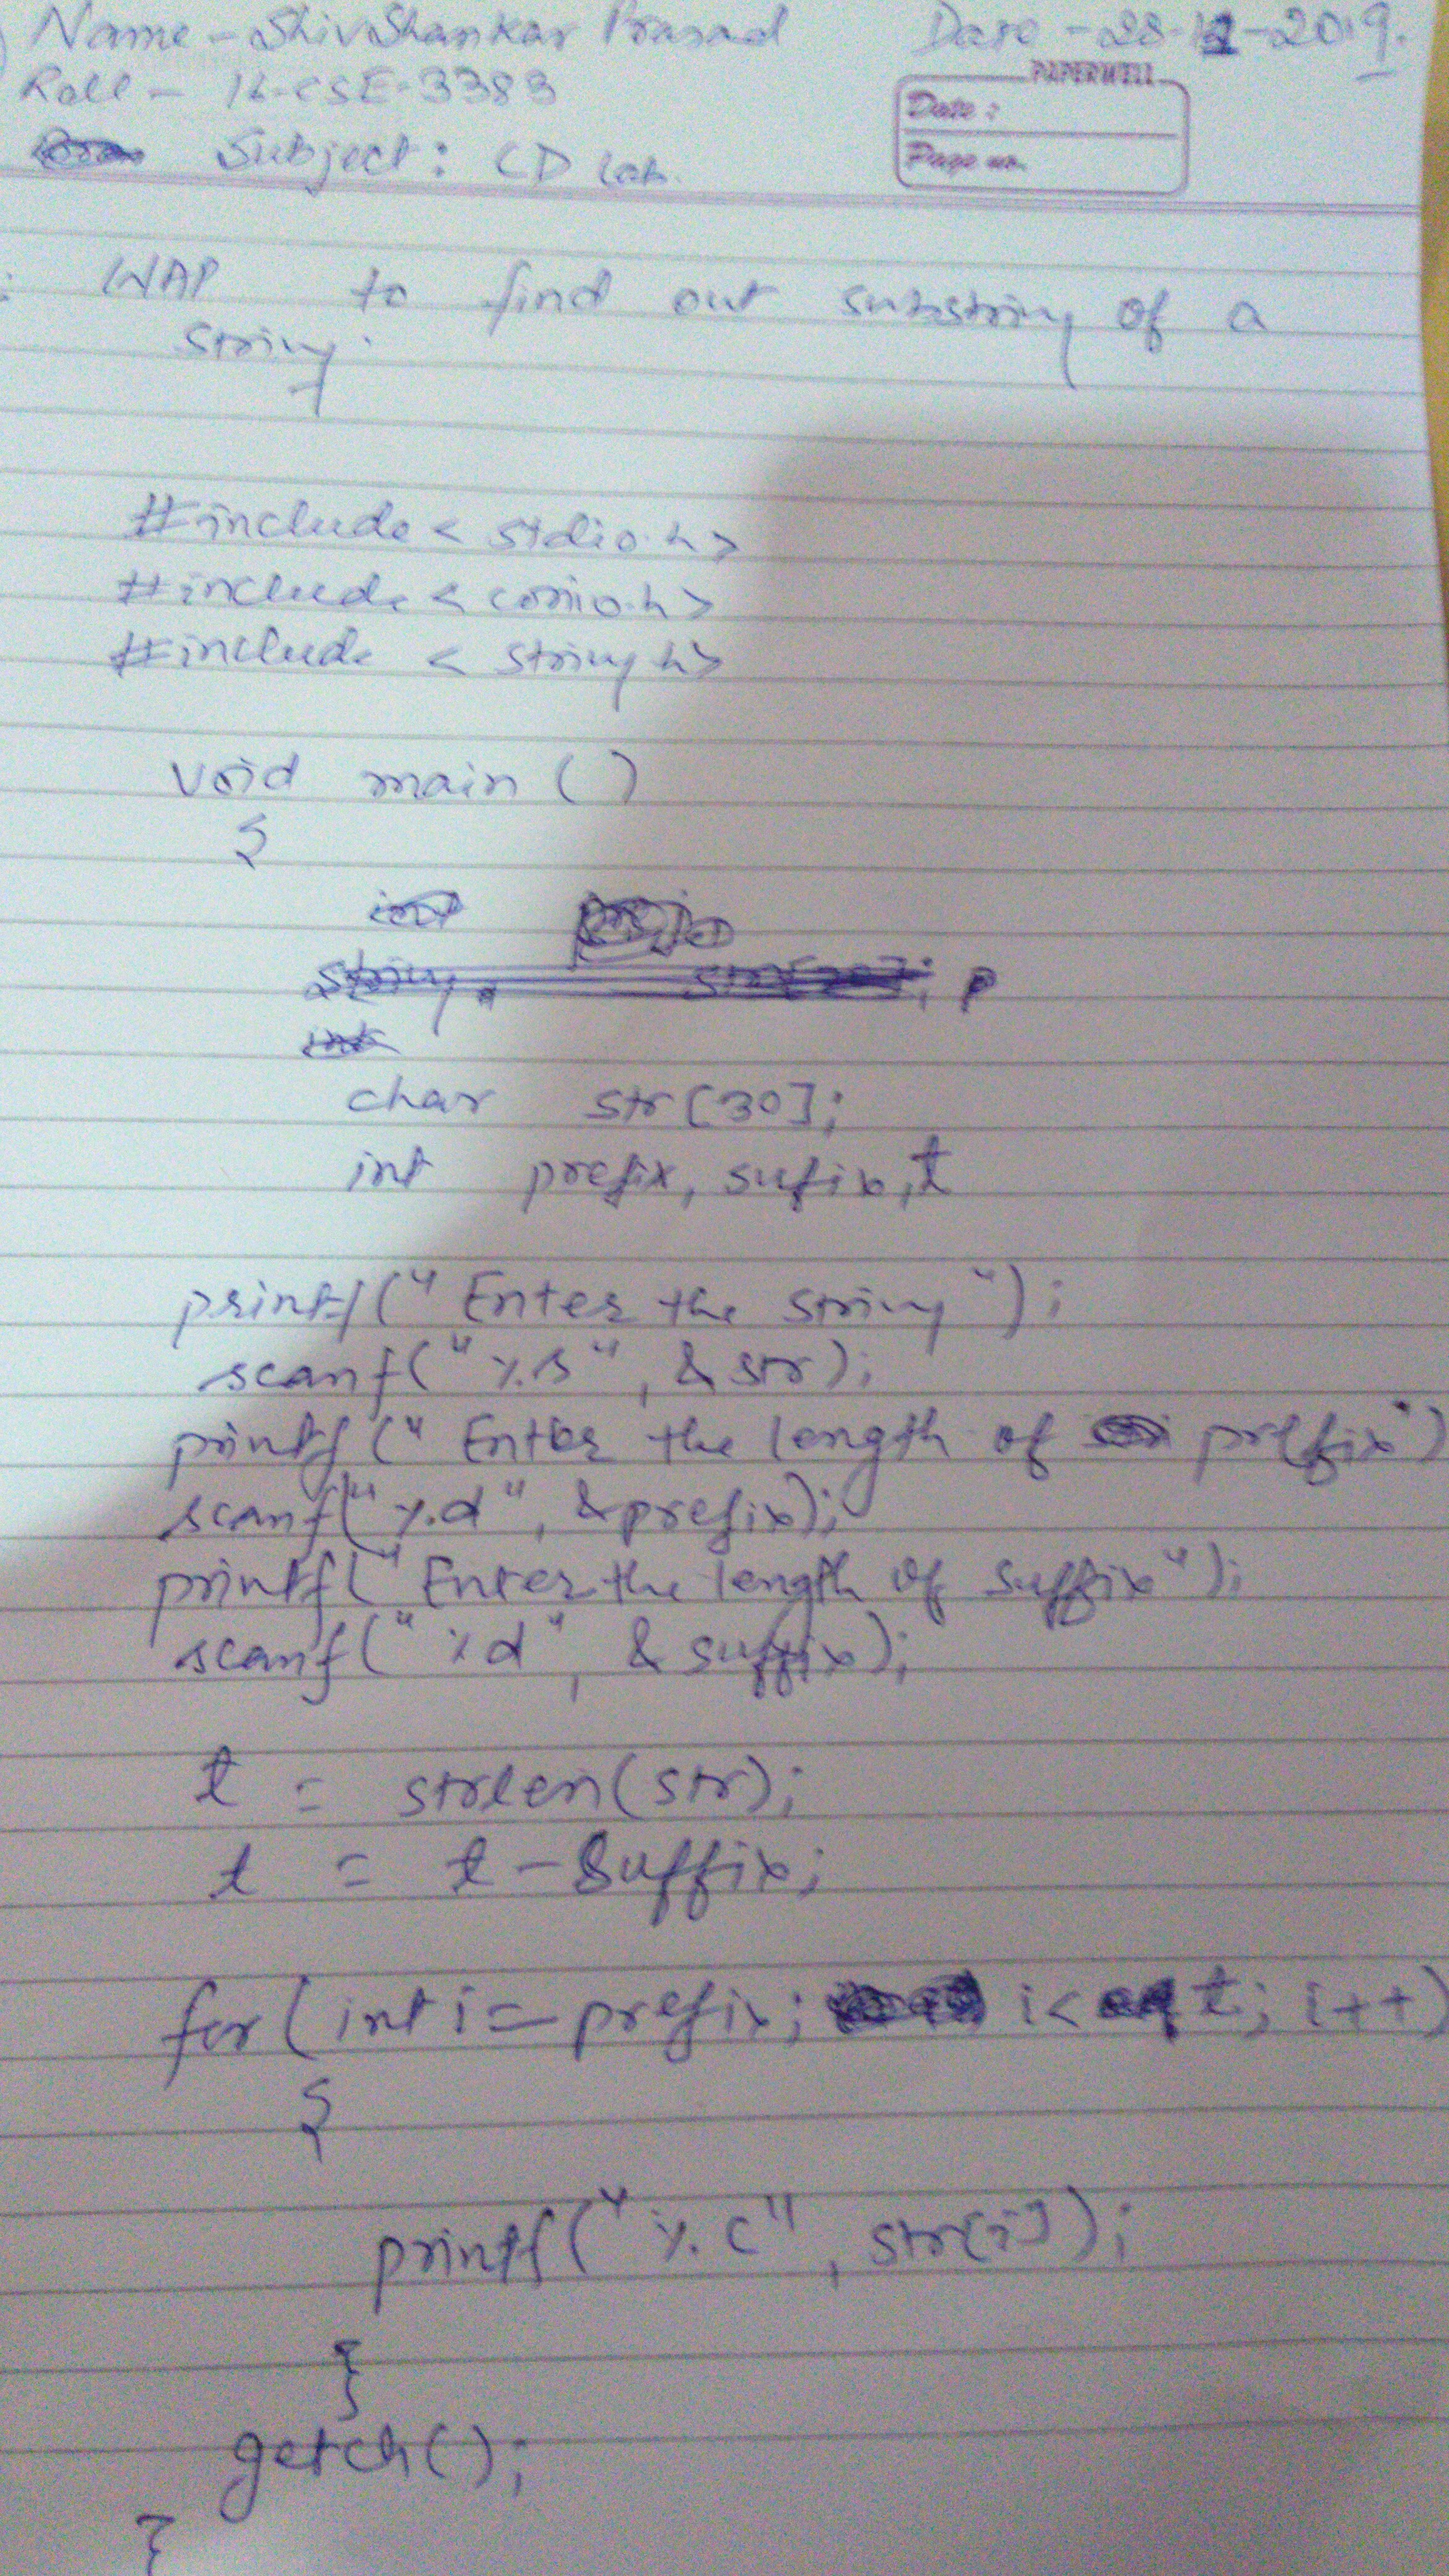 Name - ShivShankar Prasad Date - 28-12-2019.
Roll - 16-CSE-3383
PAPERWELL
Date :
Page no.
Subject : CD Lab.
WAP to find out substring of a
string.
#include < stdio.h>
#include < conio.h>
#include < string.h>
void main ( )
{
char str [30];
int prefix, sufix, t
printf(" Enter the string");
scanf(" %s", & str);
printf (" Enter the length of prefix")
scanf(" %d", &prefix);
printf(" Enter the length of suffix");
scanf(" %d", & suffix);
t = strlen(str);
t = t - suffix;
for ( int i = prefix; i < t; i++)
{
printf(" %c", str[i]);
}
getch();
}